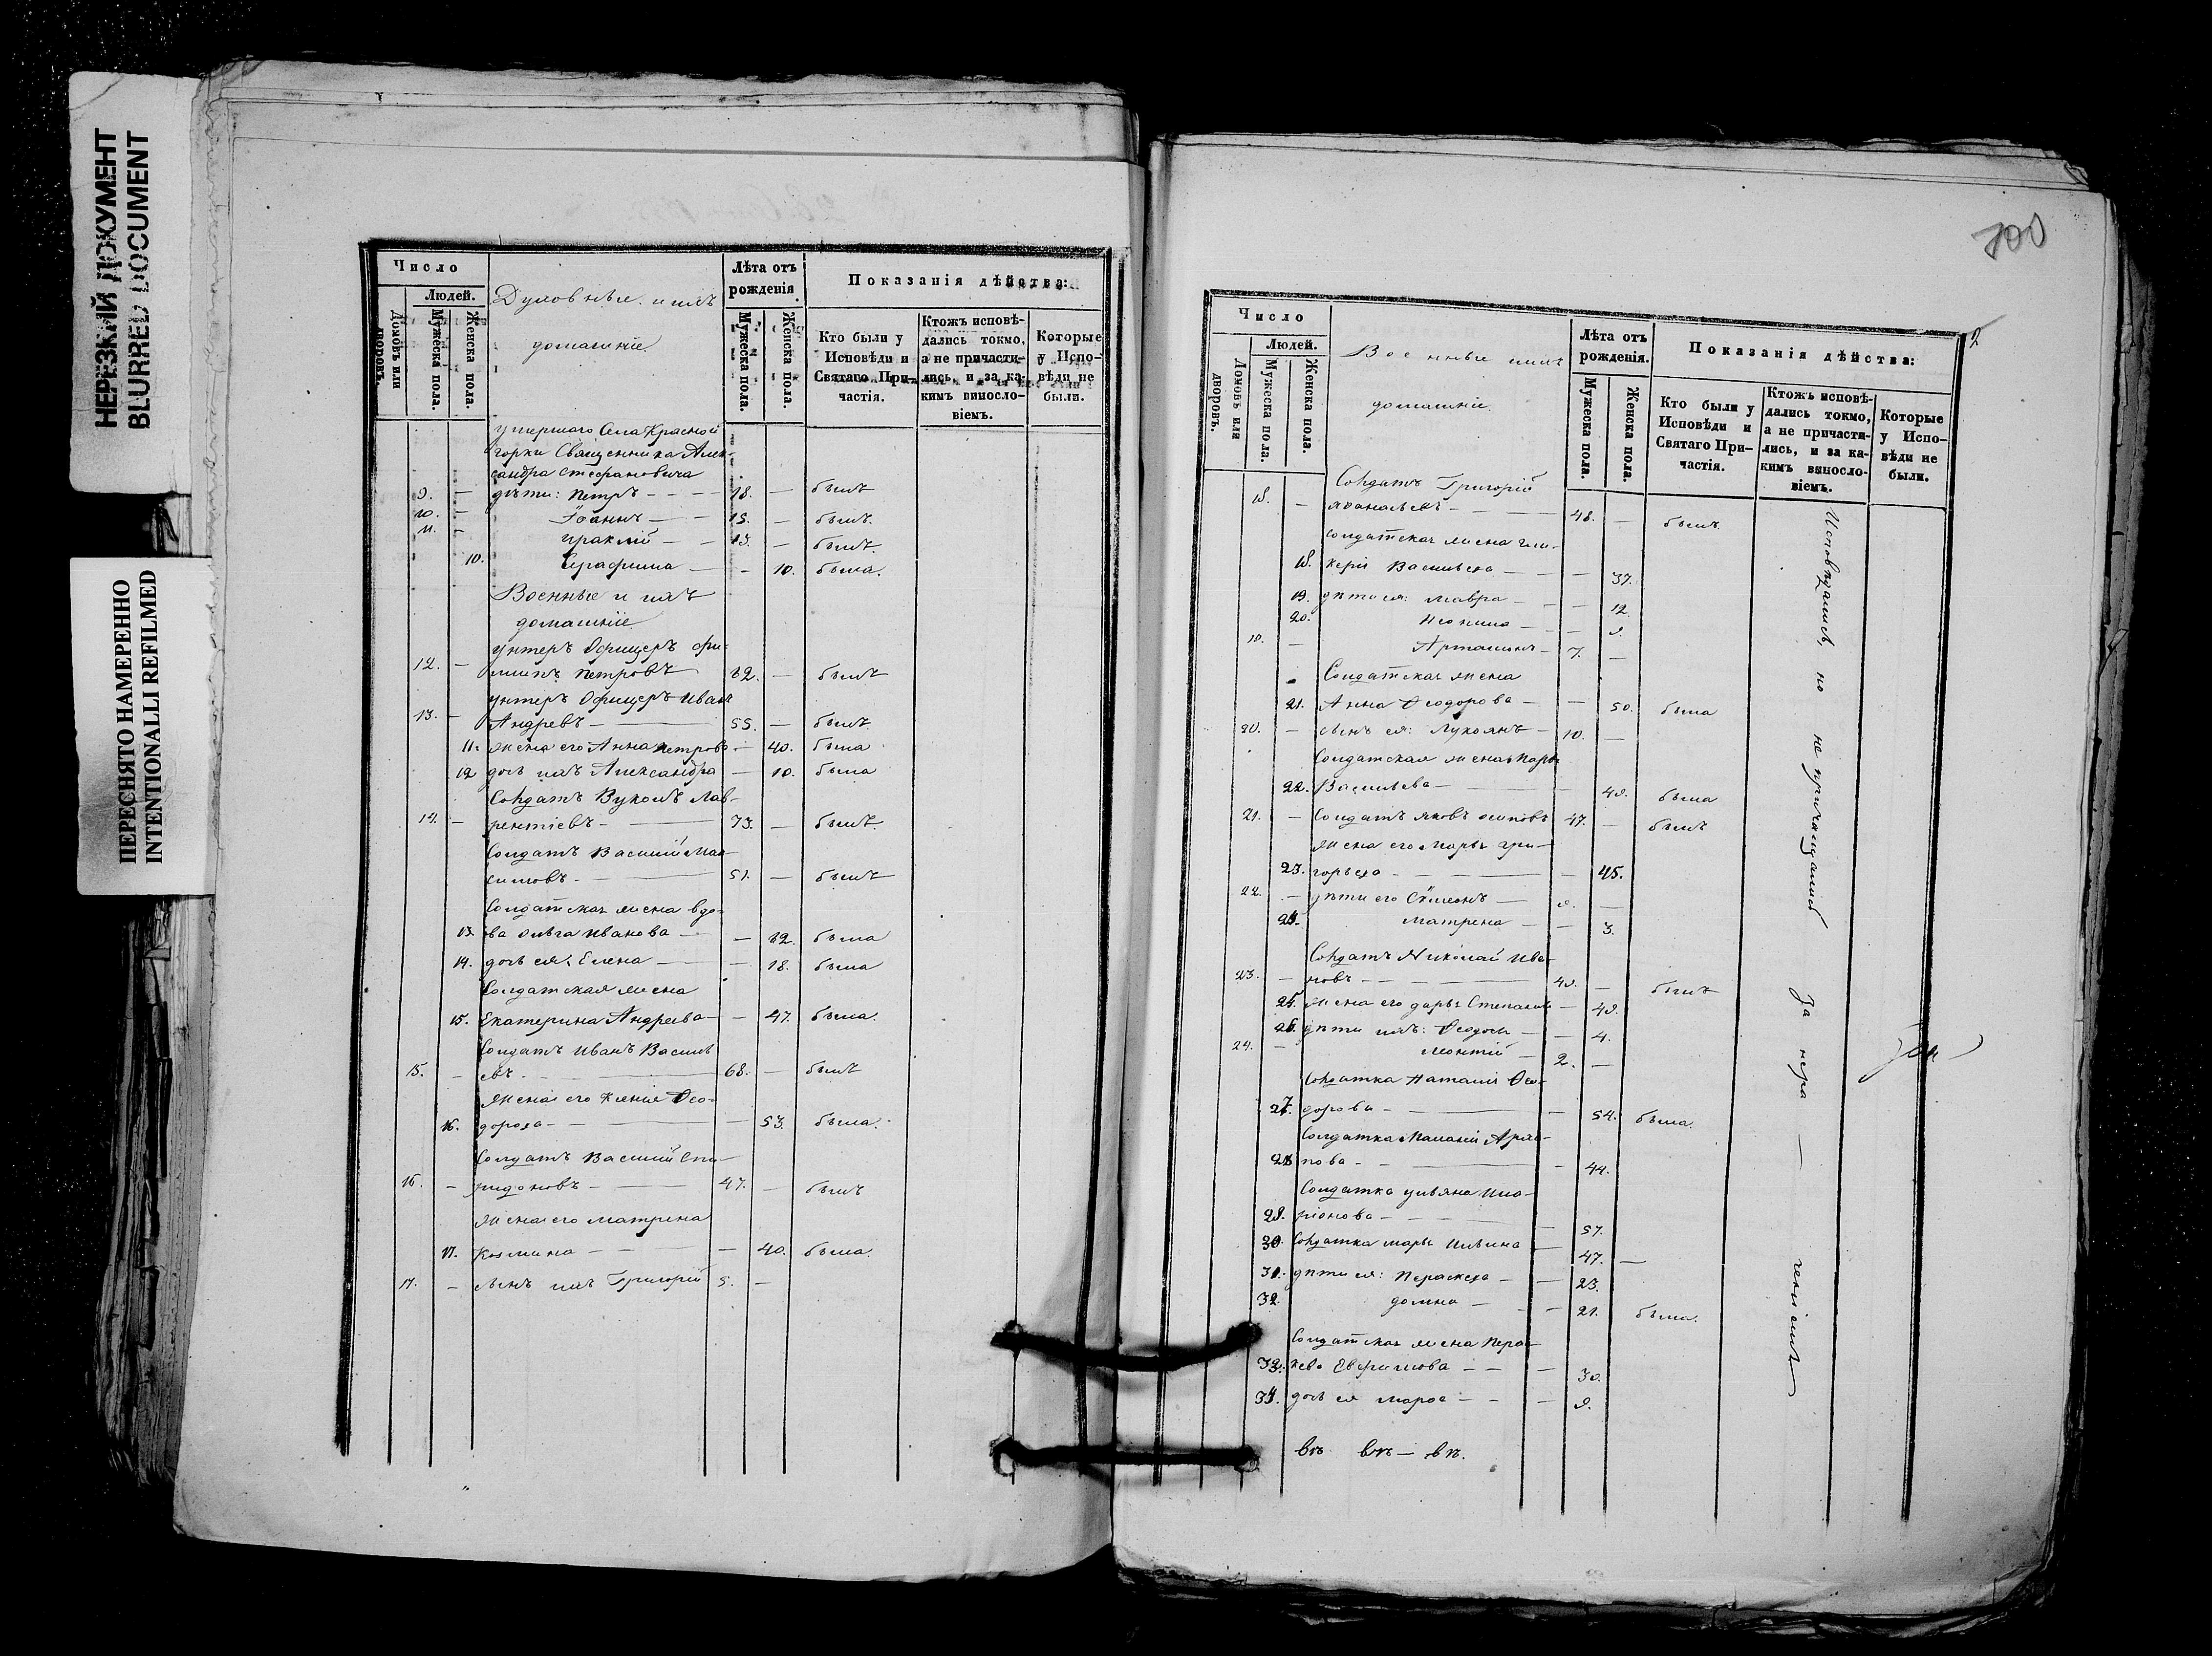 НЕРЕЗКИЙ ДОКУМЕНТ
BLURRED DOCUMENT
ПЕРЕСНЯТО НАМЕРЕННО
INTENTIONALLI REFILMED
Число
Людей.
Домовъ или дворовъ.
Мужеска пола.
Женска пола.
Духовные и ихъ
домашніе.
Лѣта отъ рожденія
Мужеска пола.
Женска пола.
Показанія дѣйства:
Кто были у Исповѣди и Святаго Причастія.
Ктожъ исповѣдались токмо, а не причастились, и за какимъ винословіемъ.
Которые у Исповѣди не были.
умершаго Села Красной
горки Священника Алек-
сандра Стефановича
9. — дѣти: Петръ — — — 18. — былъ
10. — Іоаннъ — — 15. — былъ.
11. — Ираклій — — 13. — былъ.
10. Серафима — — 10. была.
Военные и ихъ
домашніе
унтеръ Офицеръ Фи-
12. — липъ Петровъ 82. — былъ
унтеръ Офицеръ Иванъ
13. — Андреевъ — 55. — былъ
11. жена его Анна Петрова — 40. была
12 дочь ихъ Александра — 10. была
Солдатъ Вуколъ Лав-
14. — рентіевъ — 73. — былъ.
Солдатъ Василій Мак-
симовъ — 51. — былъ
Солдатская жена вдо-
13. ва Ольга Иванова — — 82. была
14. дочь ея: Елена — — 18. была
Солдатская жена
15. Екатерина Андреева — — 47. была.
Солдатъ Иванъ Василь
15. — евъ — 68. — былъ
жена его Ксенія Ѳео-
16. дорова — — 53. была.
Солдатъ Василій Спи-
16. — ридоновъ — 47. — былъ
жена его Матрена
17. Козмина — — 40. была.
17. — сынъ ихъ Григорій 5. —
700
2
Число
Людей.
Домовъ или дворовъ.
Мужеска пола.
Женска пола.
Военные ихъ
домашніе.
Лѣта отъ рожденія.
Мужеска пола.
Женска пола.
Показанія дѣйства:
Кто были у Исповѣди и Святаго Причастія.
Ктожъ исповѣдались токмо, а не причастились, и за какимъ винословіемъ.
Которые у Исповѣди не были.
Солдатъ Григорій
18. — Аѳанасьевъ — 48. — былъ
солдатская жена Гли-
18. керія Васильева — — 37.
19. дѣти ея: Мавра — — 12
20. Неонила — — 9.
19. — Артамонъ — 7. —
Солдатская жена
21. Анна Ѳеодорова — — 50. была
20. — сынъ ея: Лукоянъ — 10. —
Солдатская жена Марѳа
22. Васильева — — 49. была
21. — Солдатъ Яковъ Осиповъ 47. — былъ
жена его Марья Гри-
23. горьева — — 45.
22. — дѣти его Сѵмеонъ — 9. —
24. Матрена — — 3.
Солдатъ Николай Ива-
23. — новъ — 49. — былъ
25. жена его Дарья Степанова — 49.
26. дѣти ихъ: Ѳедосья — — 4.
24. — Леонтій — 2. —
Солдатка Наталія Ѳео-
27. дорова — — 54. была.
Солдатка Маланія Архи-
28 пова — — 44.
Солдатка Ульяна Ила-
29. ріонова — — 57.
30. Солдатка Марья Ильина — 47. —
31. дѣти ея: Параскева — — 23.
32. Домна — — 21. была.
Солдатская жена Парас-
33. кева Евфимова — — — 39.
34. дочь ея Марѳа — — — 9.
Исповѣдались, но не причащались За нера — ченіемъ